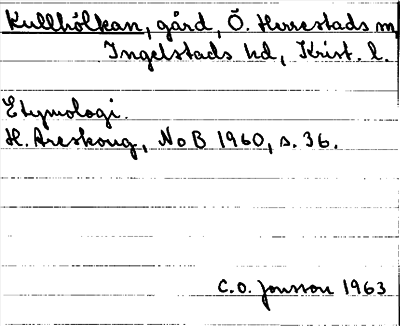 Kullhólkan, gård, Ö. Herrestads m,
Ingelstads hd, Krist. l.
Etymologi.
H. Areskoug, NoB 1960, s. 36.
C.O. Jonsson 1963